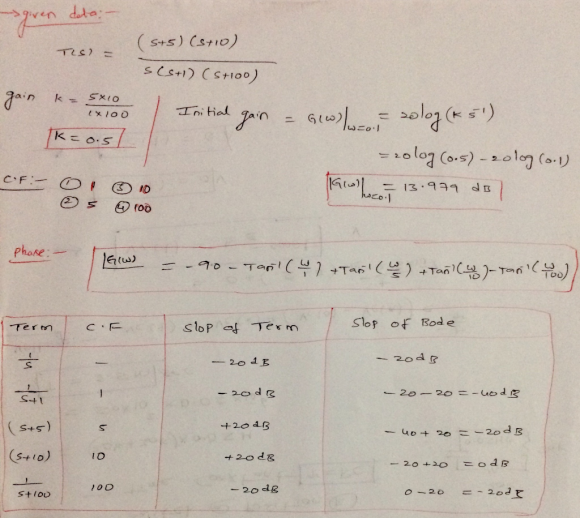 → given data:-
T(s) = (s+5) (s+10) / s (s+1) (s+100)
gain K = 5×10 / 1×100
K = 0.5
Initial gain = G(ω)|ω=0.1 = 20log(K s⁻¹)
= 20log(0.5) - 20log(0.1)
|G(ω)|ω=0.1 = 13.979 dB
C.F:- ① 1 ③ 10
② 5 ④ 100
Phase:- ∠G(ω) = -90 - Tan⁻¹(ω/1) + Tan⁻¹(ω/5) + Tan⁻¹(ω/10) - Tan⁻¹(ω/100)
Term C.F Slop of Term Slop of Bode
1/s — -20dB -20dB
1/s+1 1 -20dB -20-20 = -40dB
(s+5) 5 +20dB -40+20 = -20dB
(s+10) 10 +20dB -20+20 = 0dB
1/s+100 100 -20dB 0-20 = -20dB